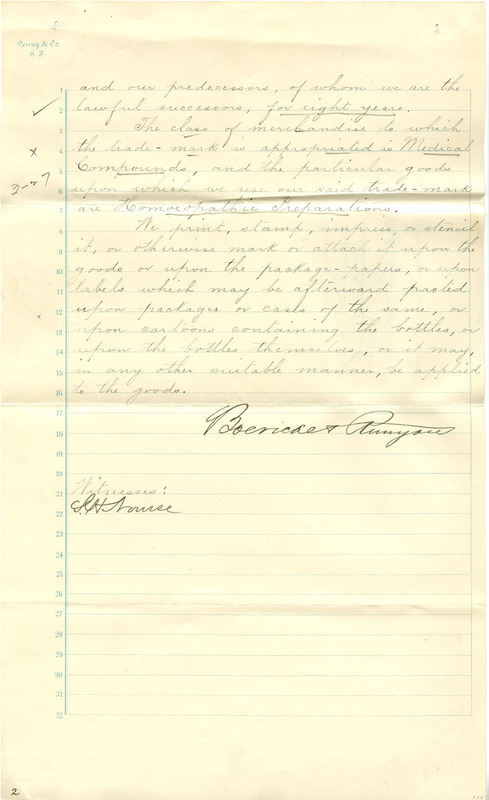 2
Dewey & Co
S. F.
1 and our predecessors, of whom we are the
2 lawful successors, for eight years.
3 The class of merchandise to which
4 the trade-mark is appropriated is Medical
5 Compounds, and the particular goods
6 upon which we use our said trade-mark
7 are Homoeopathic Preparations.
8 We print, stamp, impress, or stencil
9 it, or otherwise mark or attach it upon the
10 goods or upon the package-papers, or upon
11 labels which may be afterward pasted
12 upon packages or cases of the same, or
13 upon cartoons containing the bottles, or
14 upon the bottles themselves, or it may,
15 in any other suitable manner, be applied
16 to the goods.
17 Boericke & Runyon
18
19
20
21 Witnesses:
22 S. H. Nourse
23
24
25
26
27
28
29
30
31
32
x
3-27
x
2